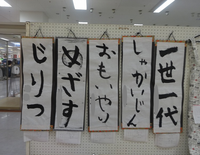 一世一代
しゃかいじん
おもいやり
めざす
じりつ